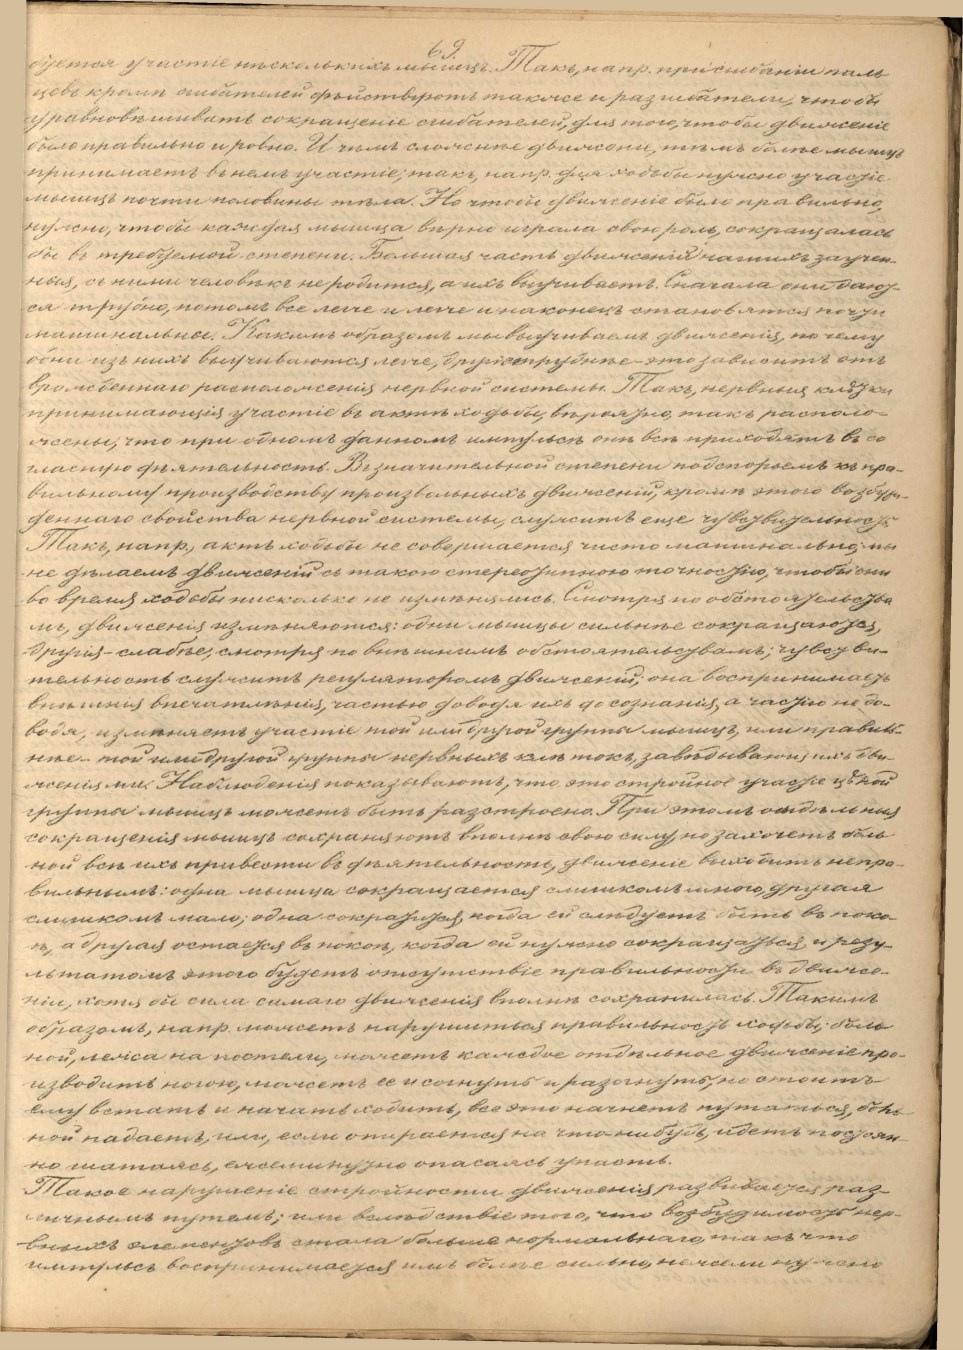 69.
буется участіе нѣсколькихъ мышцъ. Такъ, напр. при сгибаніи паль
цевъ кромѣ сгибателей дѣйствуютъ также и разгибатели, чтобы
уравновѣшивать сокращеніе сгибателей, для того, чтобы движеніе
было правильно и ровно. И чѣмъ сложнѣе движеніе, тѣмъ болѣе мышцъ
принимаетъ въ немъ участіе; такъ, напр. для ходьбы нужно участіе
мышцъ почти половины тѣла. Но чтобы движеніе было правильно,
нужно, чтобы каждая мышца вѣрно играла свою роль, сокращалась
бы въ требуемой степени. Большая часть движеній нашихъ заучен-
ныя, съ ними человѣкъ не родится, а ихъ выучиваетъ. Сначала они дают-
ся трудно, потомъ все легче и легче и наконецъ становятся почти
машинальны. Какимъ образомъ мы выучиваемъ движенія, почему
одни изъ нихъ выучиваются легче, другіе труднѣе – это зависитъ отъ
врожденнаго расположенія нервной системы. Такъ, нервныя клѣтки
принимающія участіе въ актѣ ходьбы, вѣроятно, такъ располо-
жены, что при одномъ данномъ импульсѣ онѣ всѣ приходятъ въ со
гласную дѣятельность. Въ значительной степени подспорьемъ къ пра-
вильному производству произвольныхъ движеній, кромѣ этого врожд-
деннаго свойства нервной системы, служитъ еще чувствительность
Такъ, напр., актъ ходьбы не совершается чисто машинально; мы
не дѣлаемъ движеній съ такою стереотипною точностію, чтобы они
во время ходьбы нисколько не измѣнялись. Смотря по обстоятельства
мъ, движенія измѣняются: одни мышцы сильнѣе сокращаются,
другія – слабѣе, смотря по внѣшнимъ обстоятельствамъ; чувстви-
тельность служитъ регуляторомъ движеній; она воспринимаетъ
внѣшнія впечатлѣнія, частью доводя ихъ до сознанія, а частію не до-
водя, измѣняетъ участіе той или другой группы мышцъ, или правиль-
нѣе – той или другой группы нервныхъ клѣтокъ, завѣдывающихъ дви-
женіями. Наблюденія показываютъ, что это стройное участіе цѣлой
группы мышцъ можетъ быть разстроено. При этомъ отдѣльныя
сокращенія мышцъ сохраняютъ вполнѣ свою силу, но захочетъ боль
ной всѣ ихъ привести въ дѣятельность, движеніе выходитъ непра-
вильнымъ: одна мышца сокращается слишкомъ много, другая
слишкомъ мало; одна сократится, когда ей слѣдуетъ быть въ поко-
ѣ, а другая остается въ покоѣ, когда ей нужно сокращаться, и резу-
льтатомъ этого будетъ отсутствіе правильности въ движе-
ніи, хотя бы сила самаго движенія вполнѣ сохранилась. Такимъ
образомъ, напр. можетъ нарушиться правильность ходьбы; боль
ной, лежа на постели, можетъ каждое отдѣльное движеніе про-
изводить ногою, можетъ ее и согнуть и разогнуть, но стоитъ
ему встать и начать ходить, все это начнетъ путаться, боль-
ной падаетъ, или, если опирается на что нибудь, идетъ постоян-
но шатаясь, ежеминутно опасаясь упасть.
Такое нарушеніе стройности движенія развивается раз-
личнымъ путемъ; или вслѣдствіе того, что возбудимость нер-
вныхъ элементовъ стала больше нормальнаго, такъ что
импульсъ воспринимается имъ болѣе сильно, нежели нужно